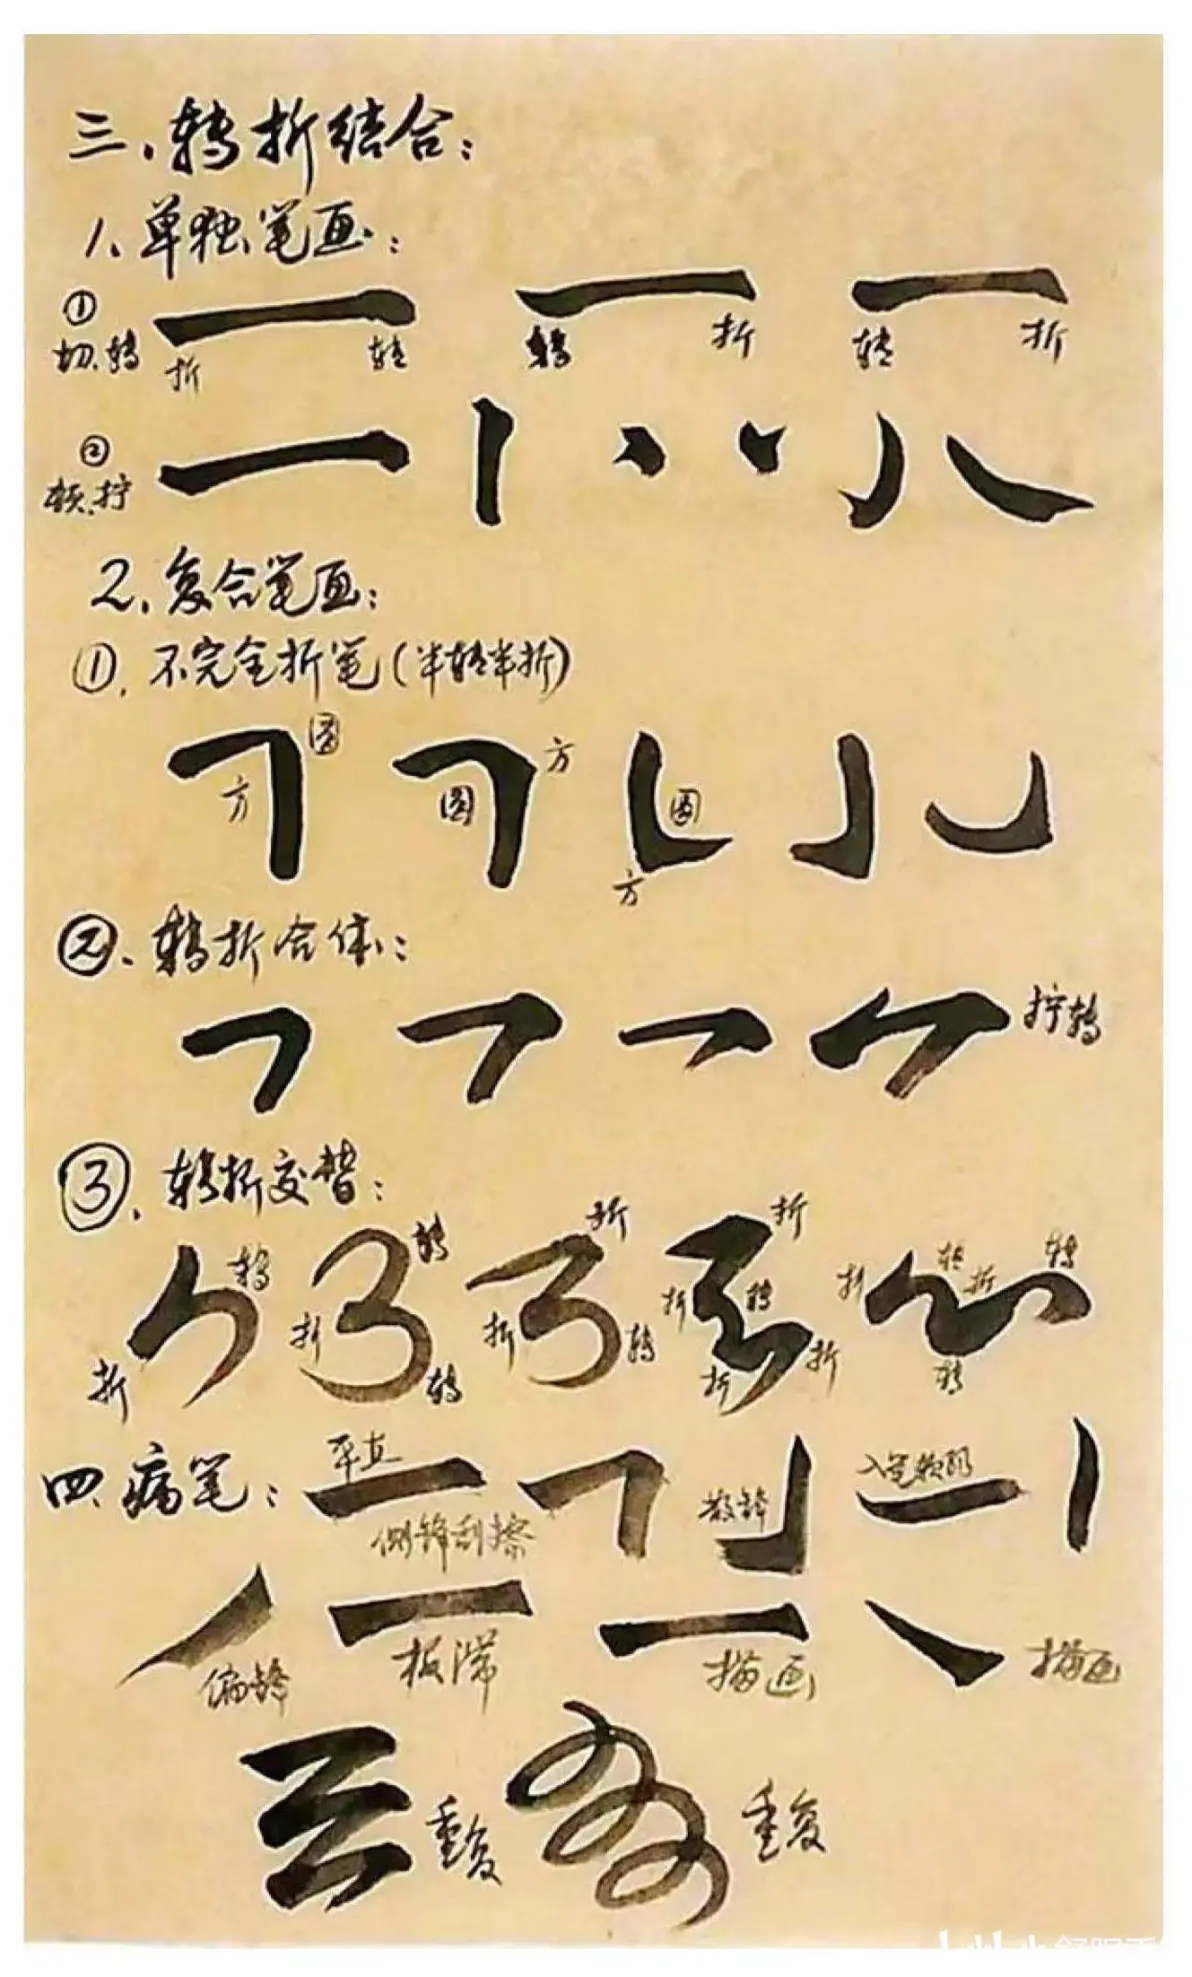 三、转折结合：
1、单独笔画：
①
切、转
折 转 转 折 转 折
②
顿、拧
2、复合笔画：
①、不完全折笔（半转半折）
方 圆 圆 方 方 圆
②、转折合体：
拧转
③、转折交替：
折 转 折 转 转 折 折 转 折 折 转 折 折 折 转 折 转 转
四、病笔：
平直
侧锋刮擦
散锋
入笔软弱
偏锋 板滞 描画 描画
重复 重复